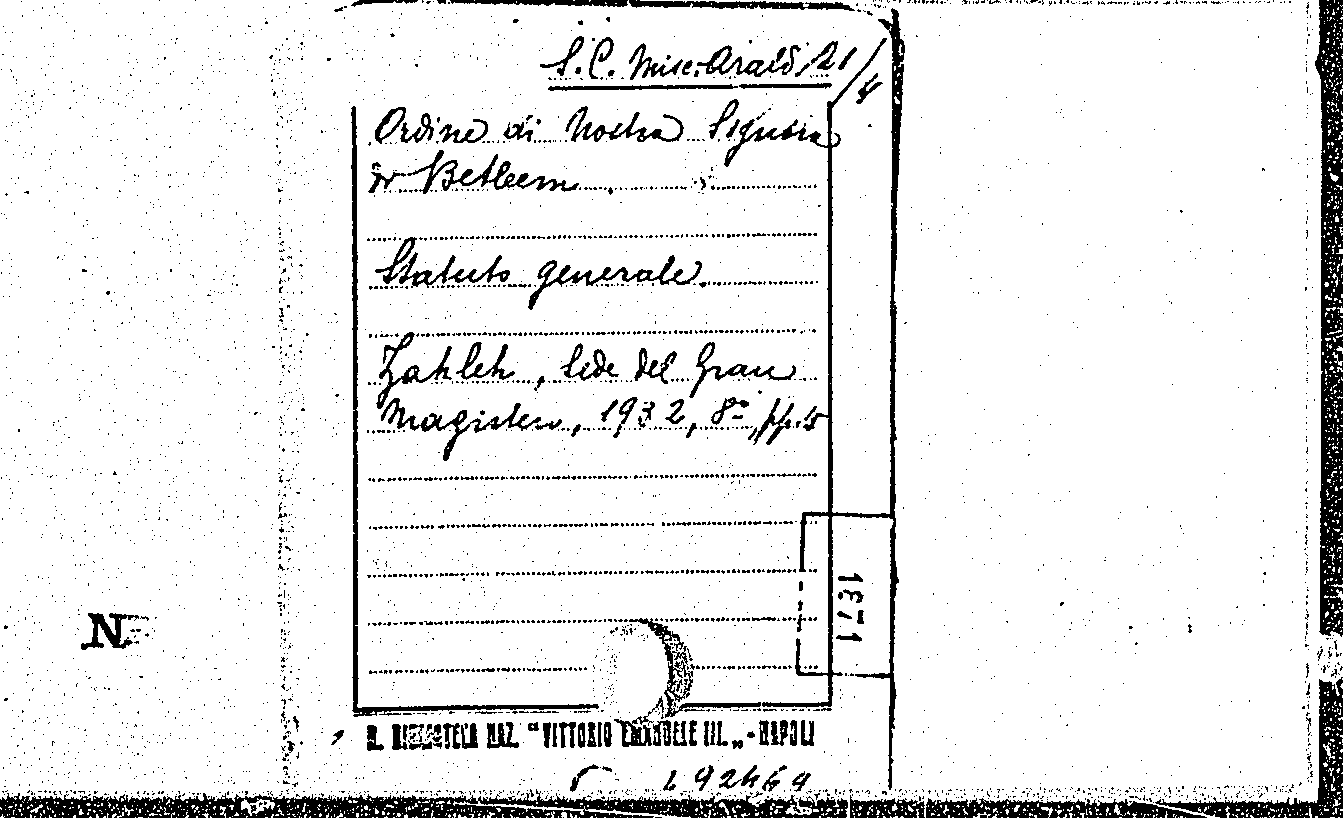 S.C. Misc. Arald. 21/4
Ordine di Nostra Signora
di Betleem.
Statuto generale.
Zahleh, Sede del Gran
Magistero, 1932, 8º, pp. 15
1871
N
R. BIBLIOTECA NAZ. "VITTORIO EMANUELE III." - NAPOLI
192469